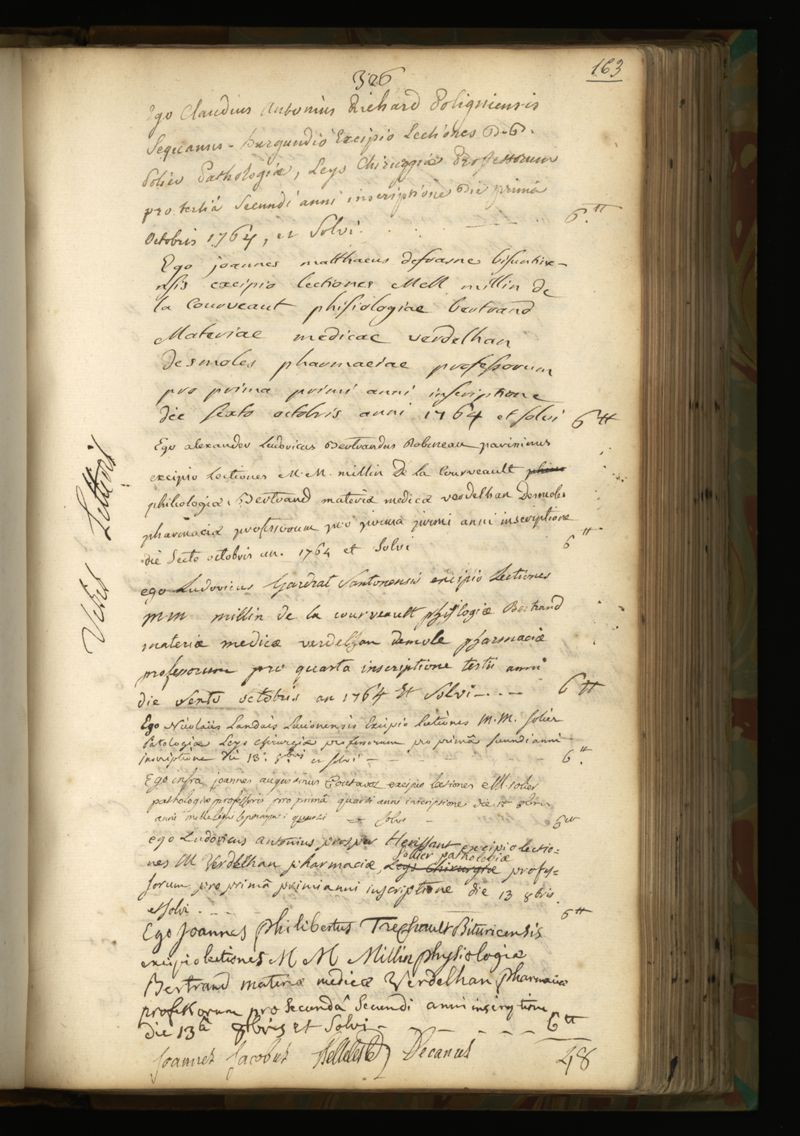 326
163
Ego Claudius Antonius Richard Poligniensis
Sequanus-Burgundio Excipio Lectiones D.D.
Solier Pathologiæ, Leys Chirurgiæ Professorum
pro tertiâ Secundi anni inscriptione Die primâ
Octobris 1764, et Solvi. 6.tt
Ego joannes matthaeus defrasne bisuntine-
nsis excipio lectiones Mell millin de
la Courveaut phisiologiae bertrand
Materiae medicae verdelhan
desmoles pharmaciae professorum
pro prima primi anni inscriptione
die sexto octobris anni 1764 et solvi 6tt
Ego alexander Ludovicus Bertrandus Robineau parisinus
excipio Lectiones M.M. millin De la Courveault
phisiologiæ, Bertrand materiæ medicæ verdelhan Desmoles
pharmaciæ professorum pro prima primi anni inscriptione
die Sexto octobris an. 1764 et Solvi 6tt
ego Ludovicus Gardrat Santonensis excipio Lectiones
mm millin de la courveault phisiologiæ Bertrand
materiæ medicæ verdelhan demole pharmaciæ
professorum pro quarta inscriptione tertii anni
die octobris an 1764 Et Solvi 6tt
Ego Nicolaüs Landais Lucionensis Excipio Lectiones M.M. Solier
Patologiæ Leys chirurgiæ professorum pro primâ secundi anni
inscriptione die 13a 8bris et solvi 6tt
Ego infra joannes augustinus Coutavoz excipio lectiones M solier
pathologiæ professoris pro primâ quarti anni inscriptione die 12 8bris
anni solvi 6tt
ego Ludovicus antonius prosper Herissant excipio lectio-
nes M Verdelhan pharmaciæ, Leys Chirurgiæ profes-
sollier pathologiæ
sorum pro primâ primi anni inscriptione die 13 8bris
et solvi 6tt
Ego Joannes philibertus Trechault Bituricensis
excipio lectiones M M Millin physiologiæ
Bertrand materiæ medicæ Verdelhan pharmaciæ
professorum pro secundâ Secundi anni inscryptione
die 13a 8bris et Solvi 6tt
Joannes Jacobus Belleteste Decanus 48